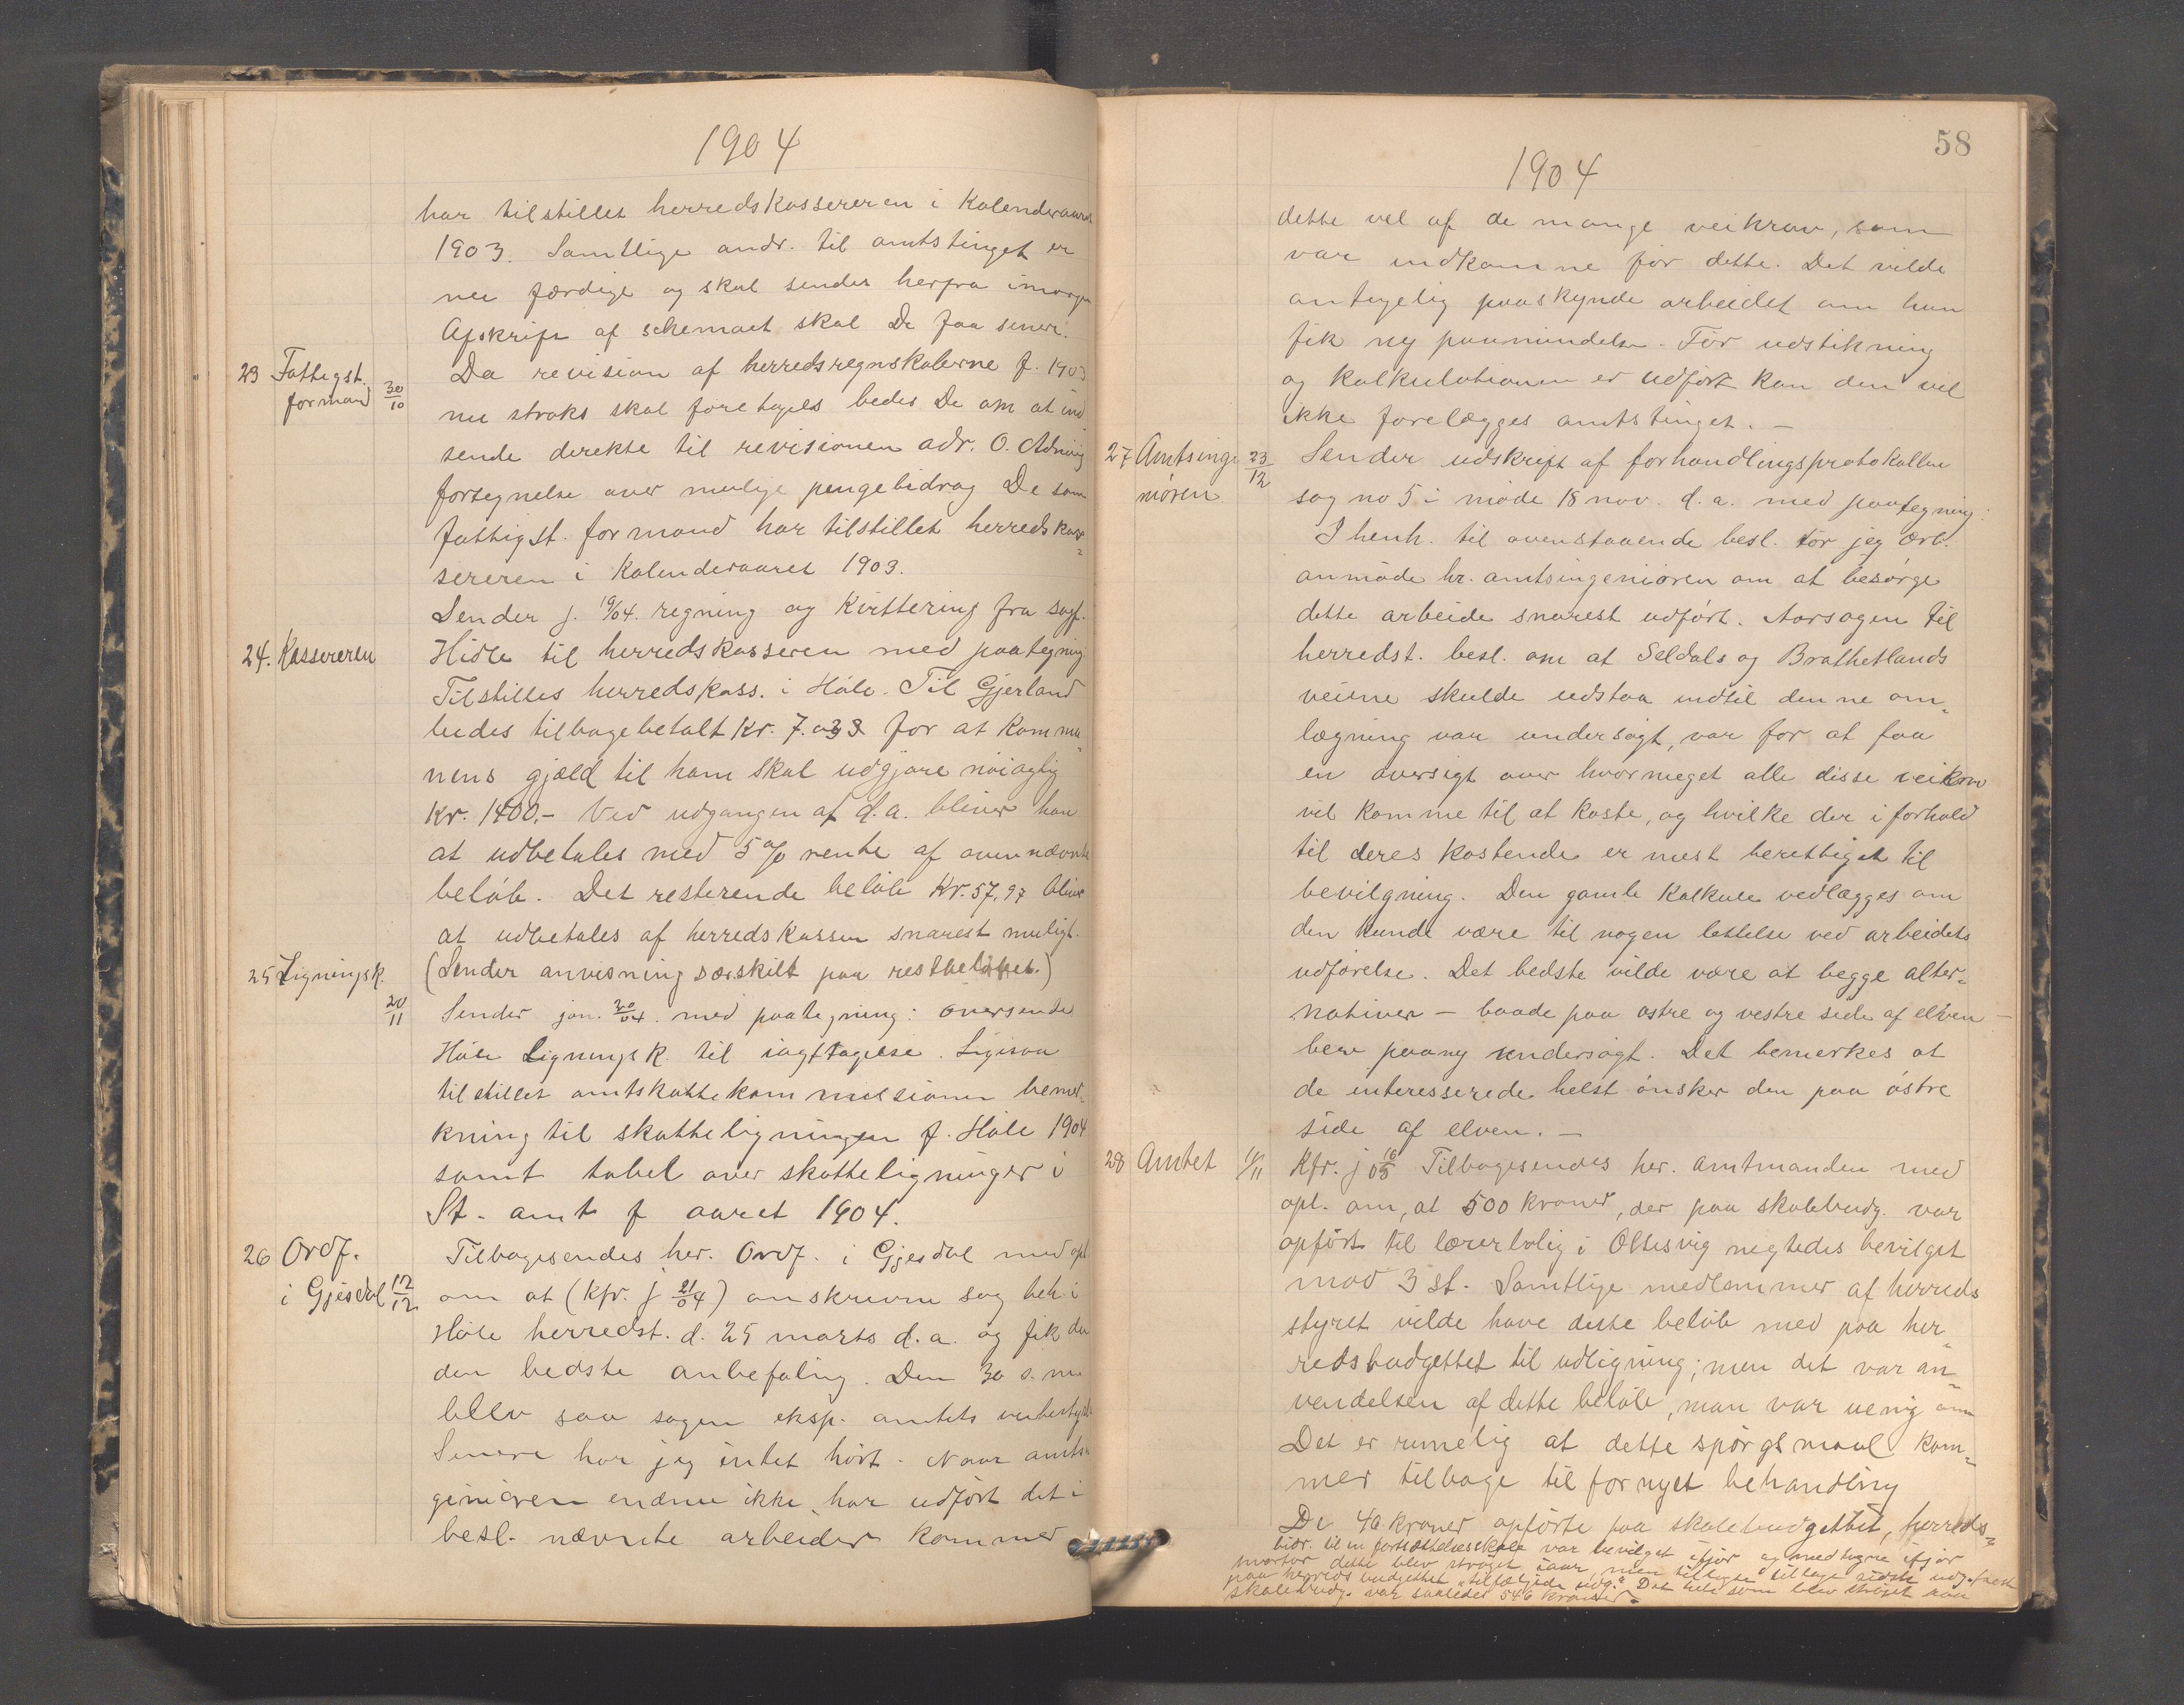 1904
har tilstillet herredskassereren i Kalenderaaret
1903. Samtlige andr. til amtstinget er
nu færdige og skal sendes herfra imorgen
Afskrift af schemaet skal De faa senere.
23 Fattigst. formand 30/10 Da revision af herredsregnskaberne f. 1903
nu straks skal foretages bedes De om at ind
sende direkte til revisionen adr. O. Adning
fortegnelse over mulige pengebidrag De som
fattigst. formand har tilstillet herredskas=
sereren i Kalenderaaret 1903.
24. Kassereren Sender j. 19/04. regning og Kvittering fra sagf.
Hidle til herredskasseren med paategning
Tilstilles herredskass. i Høle. Til Gjerland
bedes tilbagebetalt Kr. 7.03 for at Kommu
nens gjæld til ham skal udgjøre nøiagtig
Kr. 1400.- Ved udgangen af d.a. bliver han
at udbetales med 5% rente af ovennævnte
beløb. Det resterende beløb Kr. 57,97 bliver
at udbetales af herredskassen snarest muligt.
(Sender anvisning særskilt paa restbeløbet.)
25 Ligningsk. 20/11 Sender jou. 20/04. med paategning: oversendes
Høle Ligningsk. til iagttagelse. Ligesaa
tilstillet amtskattekommissionen bemær=
kning til skatteligningen f. Høle 1904
samt tabel over skatteligninger i
St. amt f aaret 1904.
26 Ordf. i Gjesdal 12/12 Tilbagesendes her. Ordf. i Gjesdal med opl.
om at (Kfr. j 21/04) omskrevne sag beh. i
Høle herredst. d. 25 marts d.a. og fik da
den bedste anbefaling. Den 30 s. m.
blev saa sagen eksp. amtets veibestyrelse
Senere har jeg intet hørt. Naar amtsin
geniøren endnu ikke har udført det i
besl. nævnte arbeider kommer
58
1904
dette vel af de mange veikrav, som
var indkomne før dette. Det vilde
antagelig paaskynde arbeidet om han
fik ny paamindelse. Før udstikning
og Kalkulationen er udført kan den vel
ikke forelægges amtstinget. —
27 Amtsinge niøren 23/12 Sender udskrift af forhandlingsprotokollen
sag no 5 i møde 18 nov. d.a. med paategning:
I henh. til ovenstaaende besl. tør jeg ærb.
anmode hr. amtsingeniøren om at besørge
dette arbeide snarest udført. Aarsagen til
herredst. besl. om at Seldals og Brathetlands
veiene skulde udstaa indtil denne om=
lægning var undersøgt, var for at faa
en oversigt over hvormeget alle disse veikrav
vil komme til at koste, og hvilke der i forhold
til deres kostende er mest berettiget til
bevilgning. Den gamle Kalkule vedlægges om
den kunde være til nogen lettelse ved arbeidets
udførelse. Det bedste vilde være at begge alter=
nativer — baade paa østre og vestre side af elven —
blev paany undersøgt. Det bemerkes at
de interesserede helst ønsker den paa østre
side af elven. —
28 Amtet 11/11 Kfr. j 16/05 Tilbagesendes her. Amtmanden med
opl. om, at 500 kroner, der paa skolebudg. var
opført til lærerbolig i Oltesvig negtedes bevilget
mod 3 st. Samtlige medlemmer af herreds
styret vilde have dette beløb med paa her=
redsbudgettet til udligning; men det var an=
vendelsen af dette beløb, man var uenig om
Det er rimelig at dette spørgsmaal kom=
mer tilbage til fornyet behandling
De 40 kroner opførte paa skolebudgettet, herreds=
bidr. til en fortsættelsesskole var bevilget ifjor og medtagne ifjor
hvorfor dette blev strøget iaar, men tillige
paa herredsbudgettet „tilfældige udg." Det hele som blev strøget paa
skolebudg. var saaledes 546 kroner.